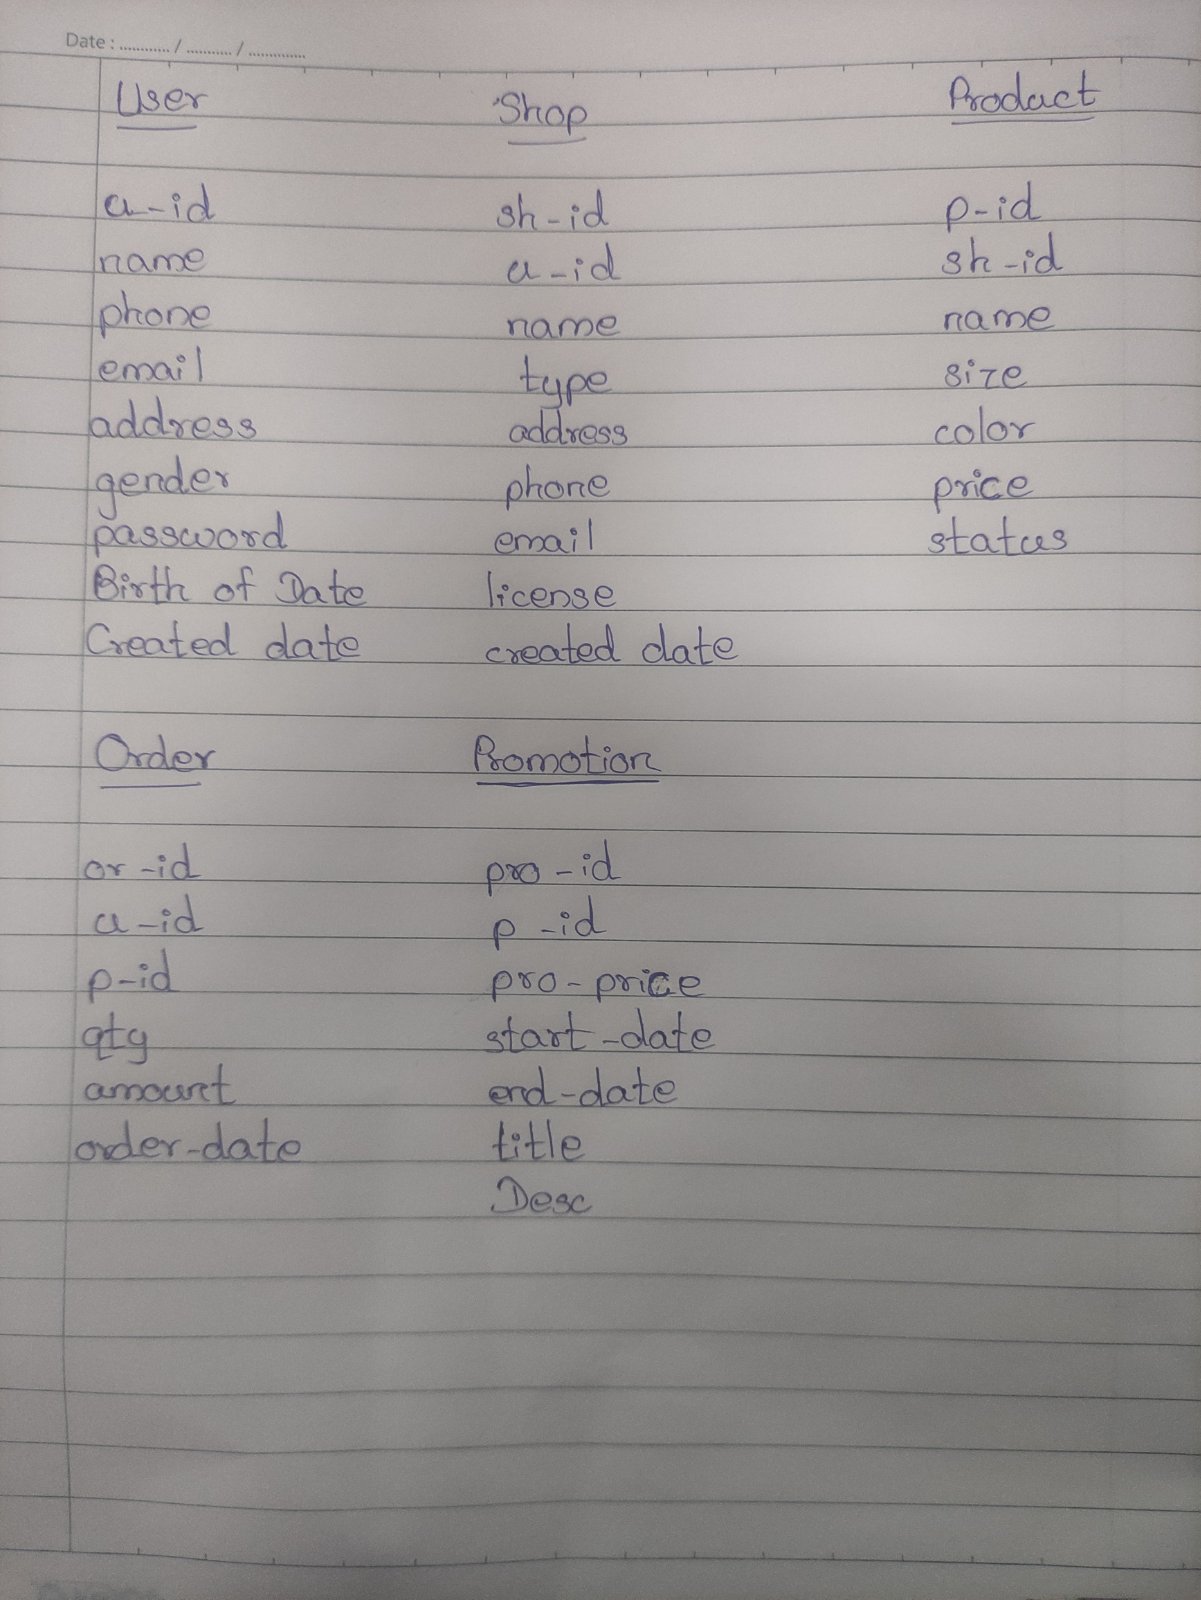 Date : ............ / ........... / ..............
User
u-id
name
phone
email
address
gender
password
Birth of Date
Created date
Shop
sh-id
u-id
name
type
address
phone
email
license
created date
Product
p-id
sh-id
name
size
color
price
status
Order
or-id
u-id
p-id
qty
amount
order-date
Promotion
pro-id
p-id
pro-price
start-date
end-date
title
Desc